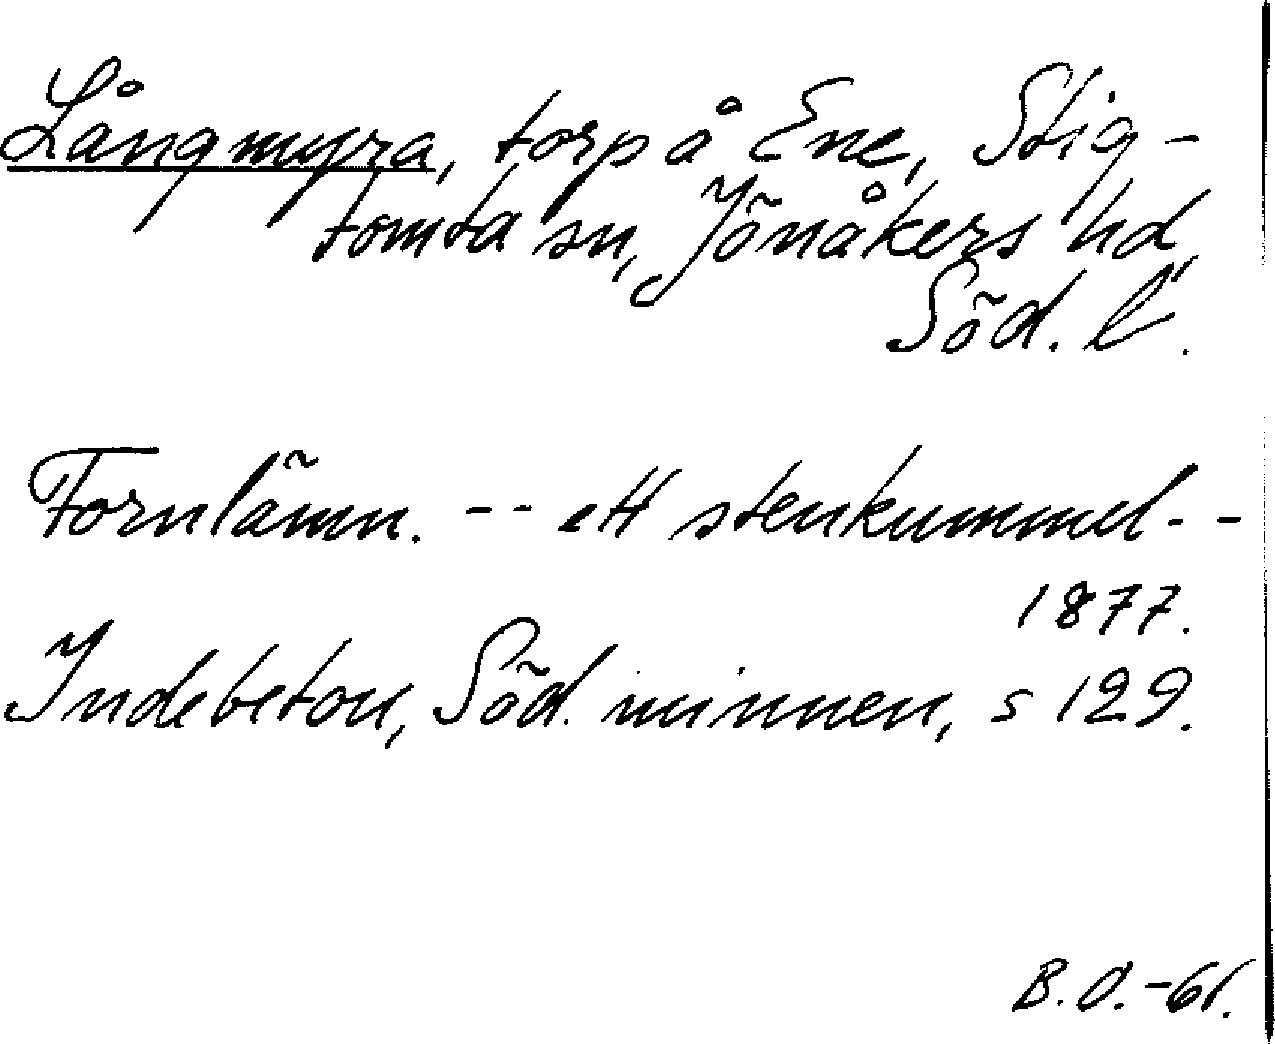 Långmyra, torp å Ene, Stig-
tomta sn, Jönåkers hd,
Söd. l.
Fornlämn. -- ett stenkummel--
1877.
Indebetou, Söd. minnen, s 129.
B.O.-61.